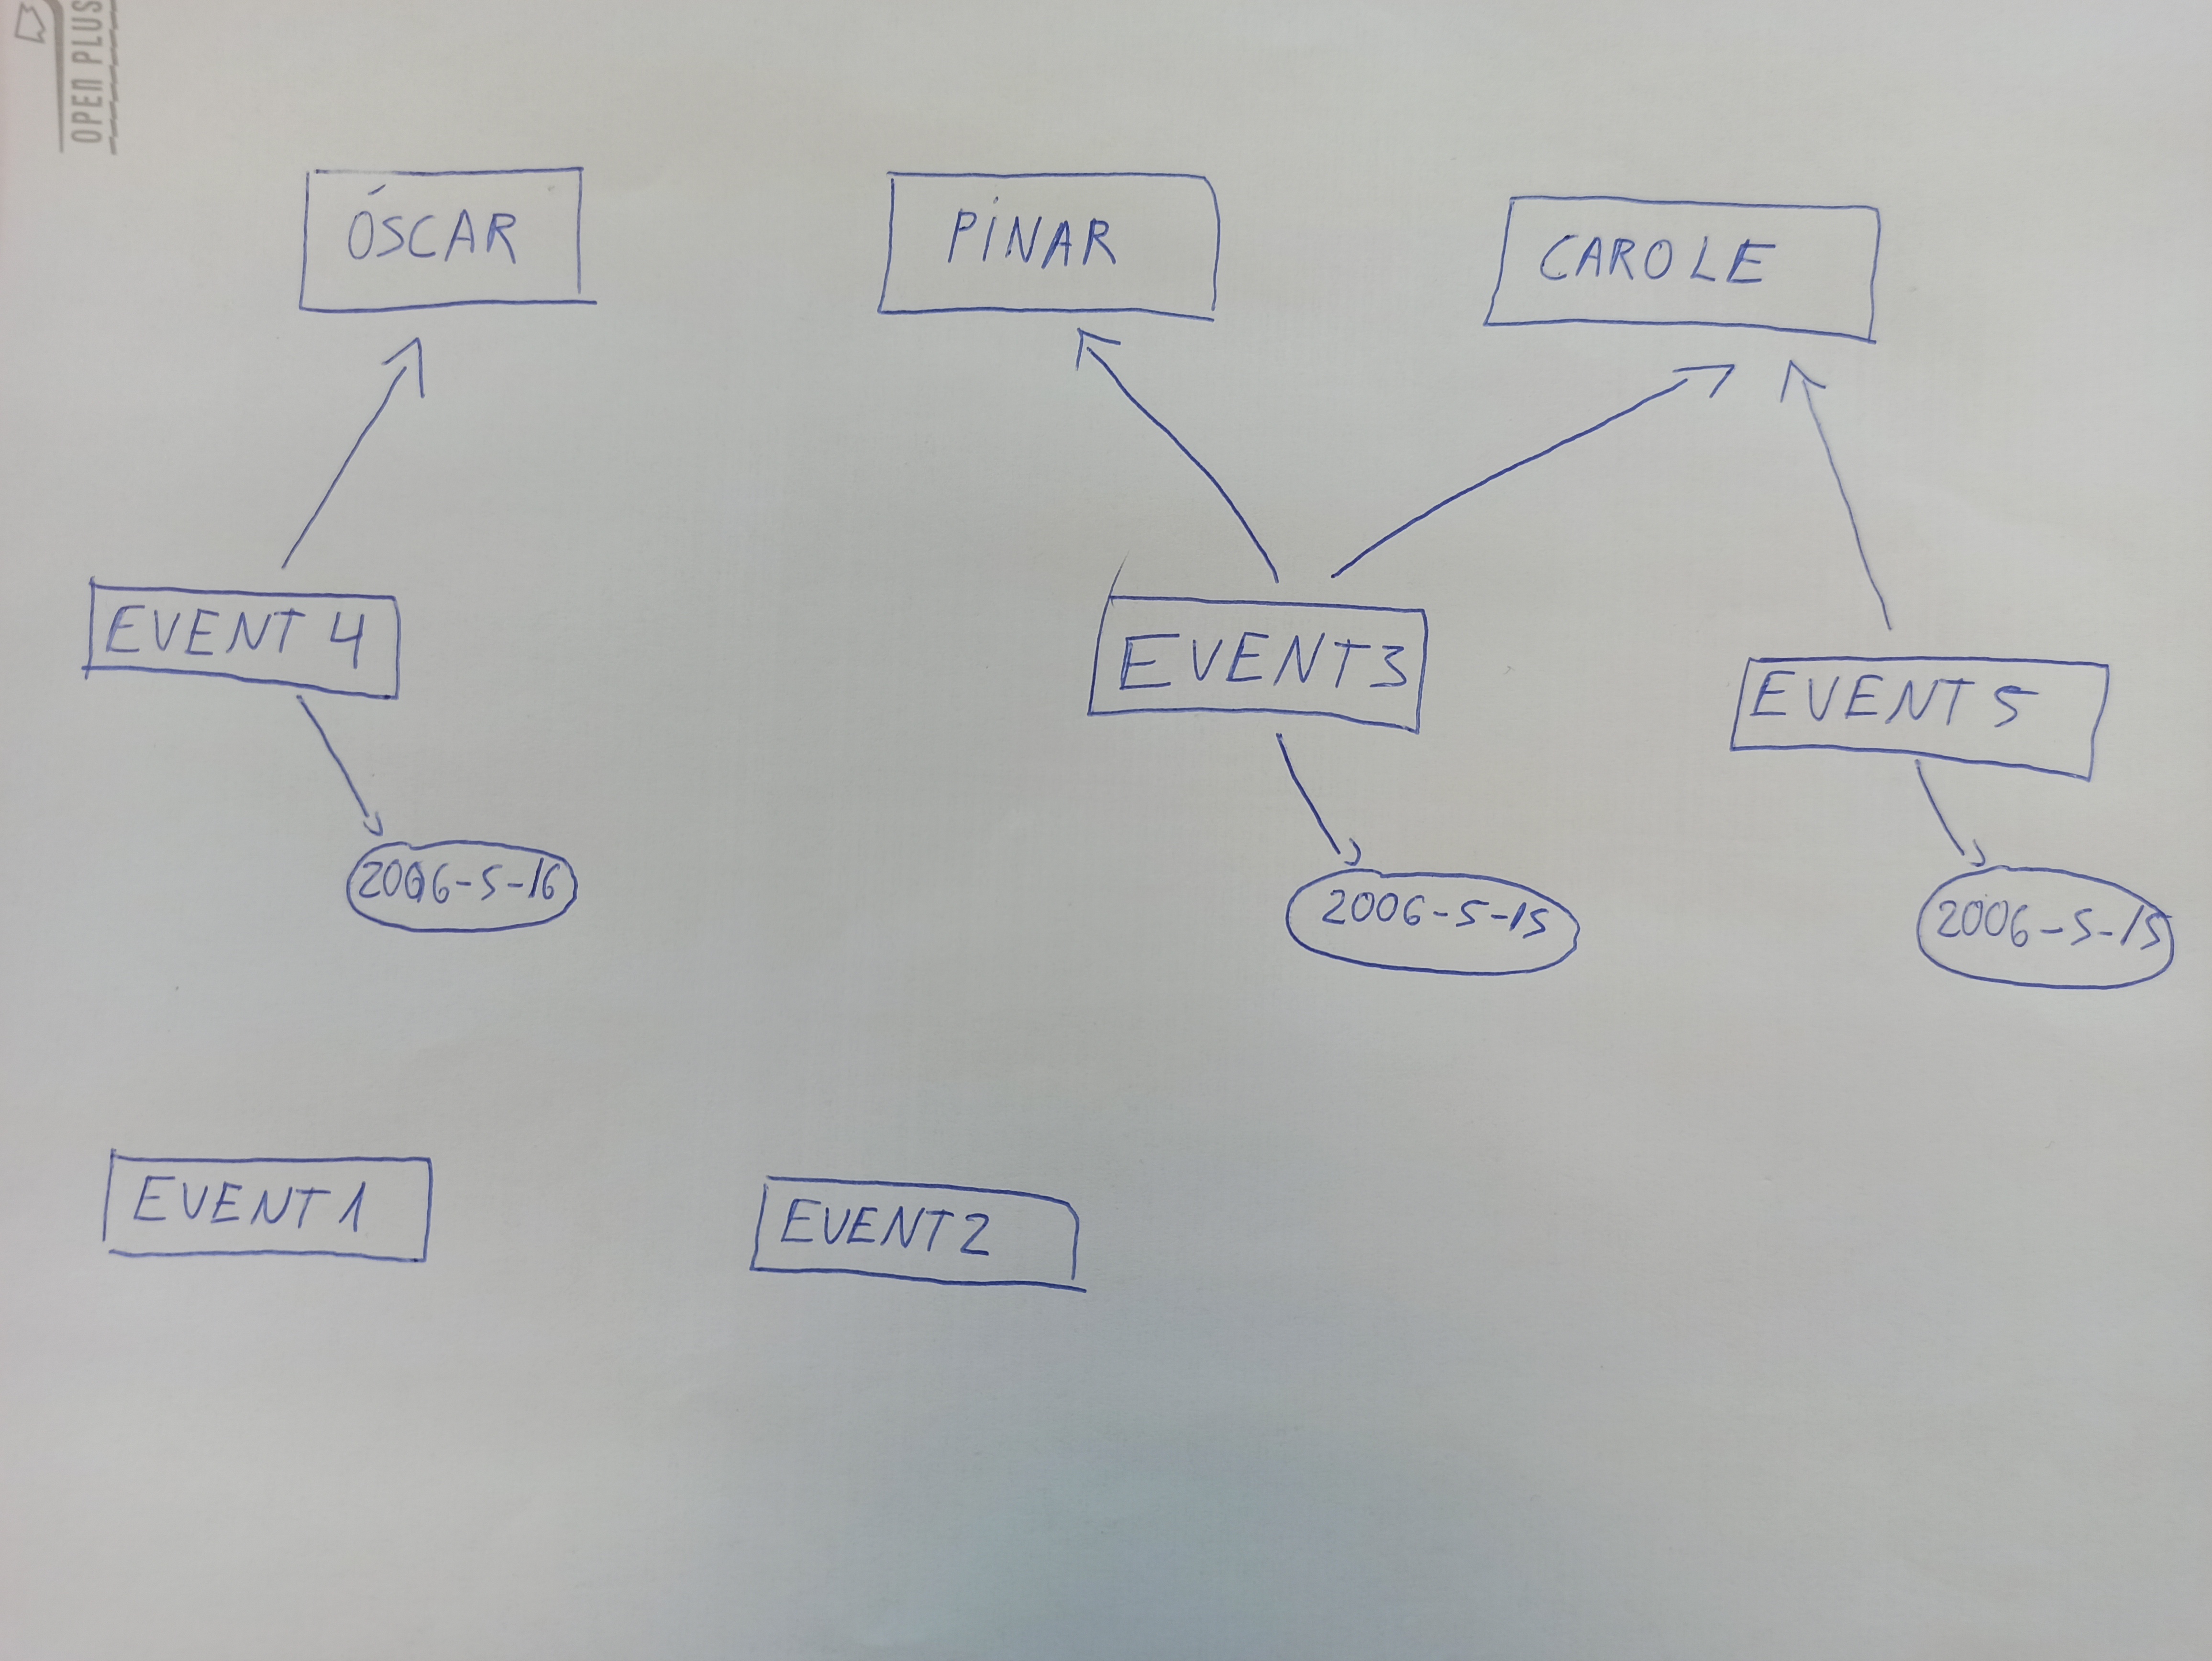 OPEN PLUS
ÓSCAR
PINAR
CAROLE
EVENT 4
EVENT 3
EVENT 5
2006-5-16
2006-5-15
2006-5-15
EVENT 1
EVENT 2